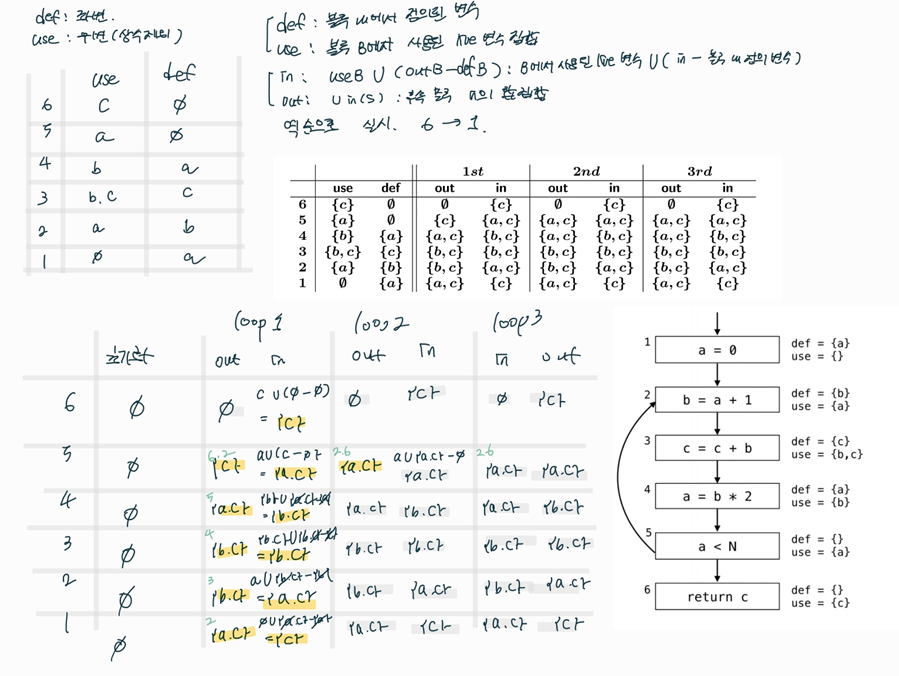 def : 좌변.
use : 우변 (상수제외)
def : 블록 내에서 정의된 변수
use : 블록 B에서 사용된 live 변수 집합
in : useB ∪ (outB-defB) : B에서 사용된 live 변수 ∪ ( in - 블록 내 정의변수)
out : ∪ in(S) : 후속 블록 in의 합집합
역순으로 실시. 6 → 1.
use def
6 C ∅
5 a ∅
4 b a
3 b.c c
2 a b
1 ∅ a
1st 2nd 3rd
use def out in out in out in
6 {c} ∅ ∅ {c} ∅ {c} ∅ {c}
5 {a} ∅ {c} {a, c} {a, c} {a, c} {a, c} {a, c}
4 {b} {a} {a, c} {b, c} {a, c} {b, c} {a, c} {b, c}
3 {b, c} {c} {b, c} {b, c} {b, c} {b, c} {b, c} {b, c}
2 {a} {b} {b, c} {a, c} {b, c} {a, c} {b, c} {a, c}
1 ∅ {a} {a, c} {c} {a, c} {c} {a, c} {c}
loop 1 loop 2 loop 3
초기화 out in out in in out
6 ∅ ∅ C ∪ (∅-∅) ∅ {c} ∅ {c}
= {c}
5 ∅ 6.2 {c} a∪{c-∅} 2.6 {a.c} a∪{a.c}-∅ 2.6 {a.c} {a.c}
= {a.c} {a.c}
4 ∅ 5 {a.c} {a.c} {b.c} {a.c} {b.c}
= {b.c}
3 ∅ 4 {b.c} {b.c} {b.c} {b.c} {b.c}
= {b.c}
2 ∅ 3 {b.c} {b.c} {a.c} {b.c} {a.c}
= {a.c}
1 ∅ 2 {a.c} {a.c} {c} {a.c} {c}
= {c}
1 a = 0 def = {a}
use = {}
2 b = a + 1 def = {b}
use = {a}
3 c = c + b def = {c}
use = {b,c}
4 a = b * 2 def = {a}
use = {b}
5 a < N def = {}
use = {a}
6 return c def = {}
use = {c}